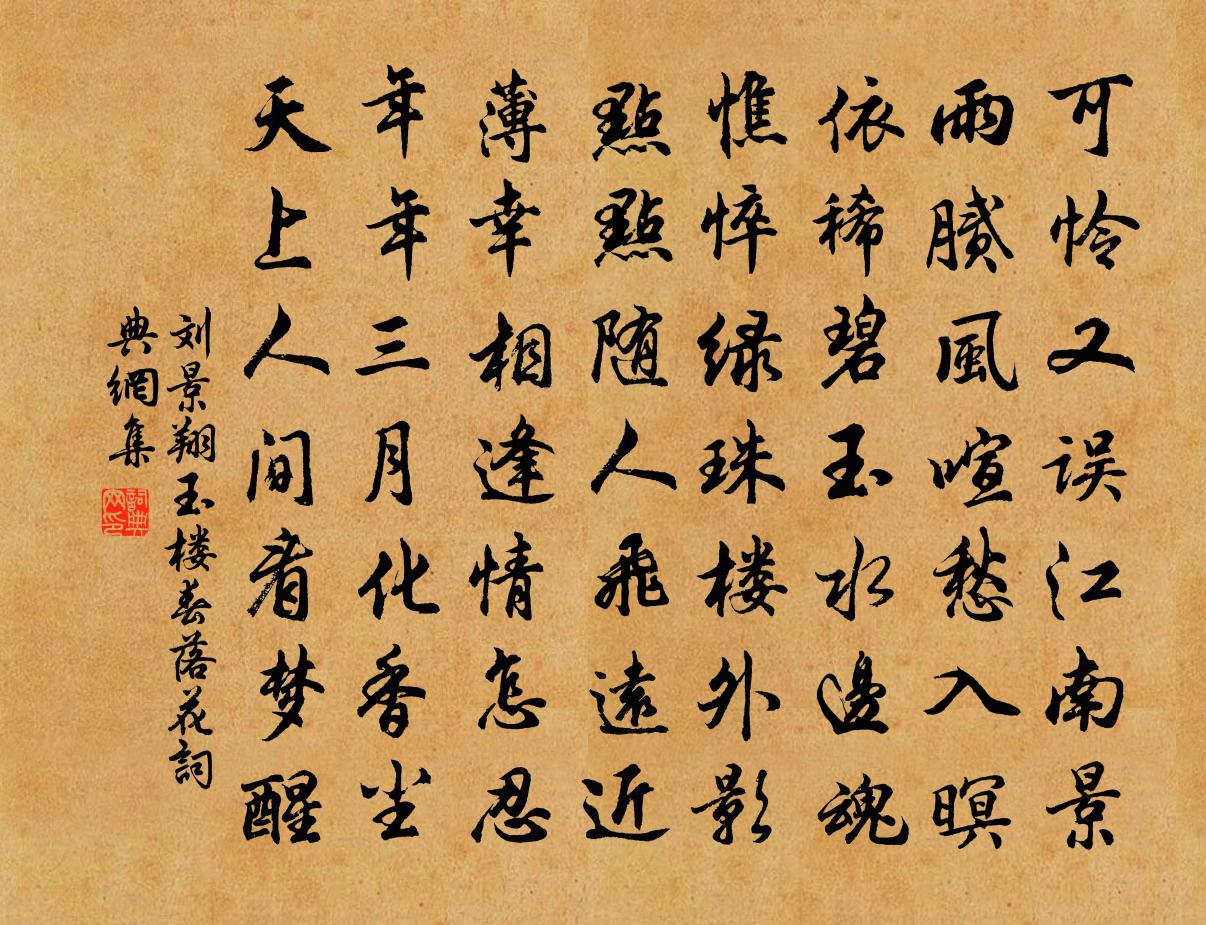 可怜又误江南景
雨腻風喧愁入暝
依稀碧玉水邊魂
憔悴绿珠楼外影
點點随人飛遠近
薄幸相逢情怎忍
年年三月化香尘
天上人间看梦醒
刘景翔玉楼春落花詞
典網集
詞典網印